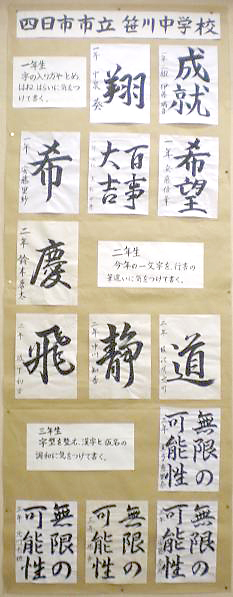 四日市市立 笹川中学校
成就
翔
一年生
字の入り方やとめ、
はね、はらいに気をつ
けて書く。
希望
百事
大吉
希
一年
二年生
今年の一文字を、行書の
筆遣いに気をつけて書く。
慶
二年 鈴木
道
静
二年
飛
二年
無限の
可能性
三年生
字型を整え、漢字と仮名の
調和に気をつけて書く。
無限の
可能性
無限の
可能性
無限の
可能性